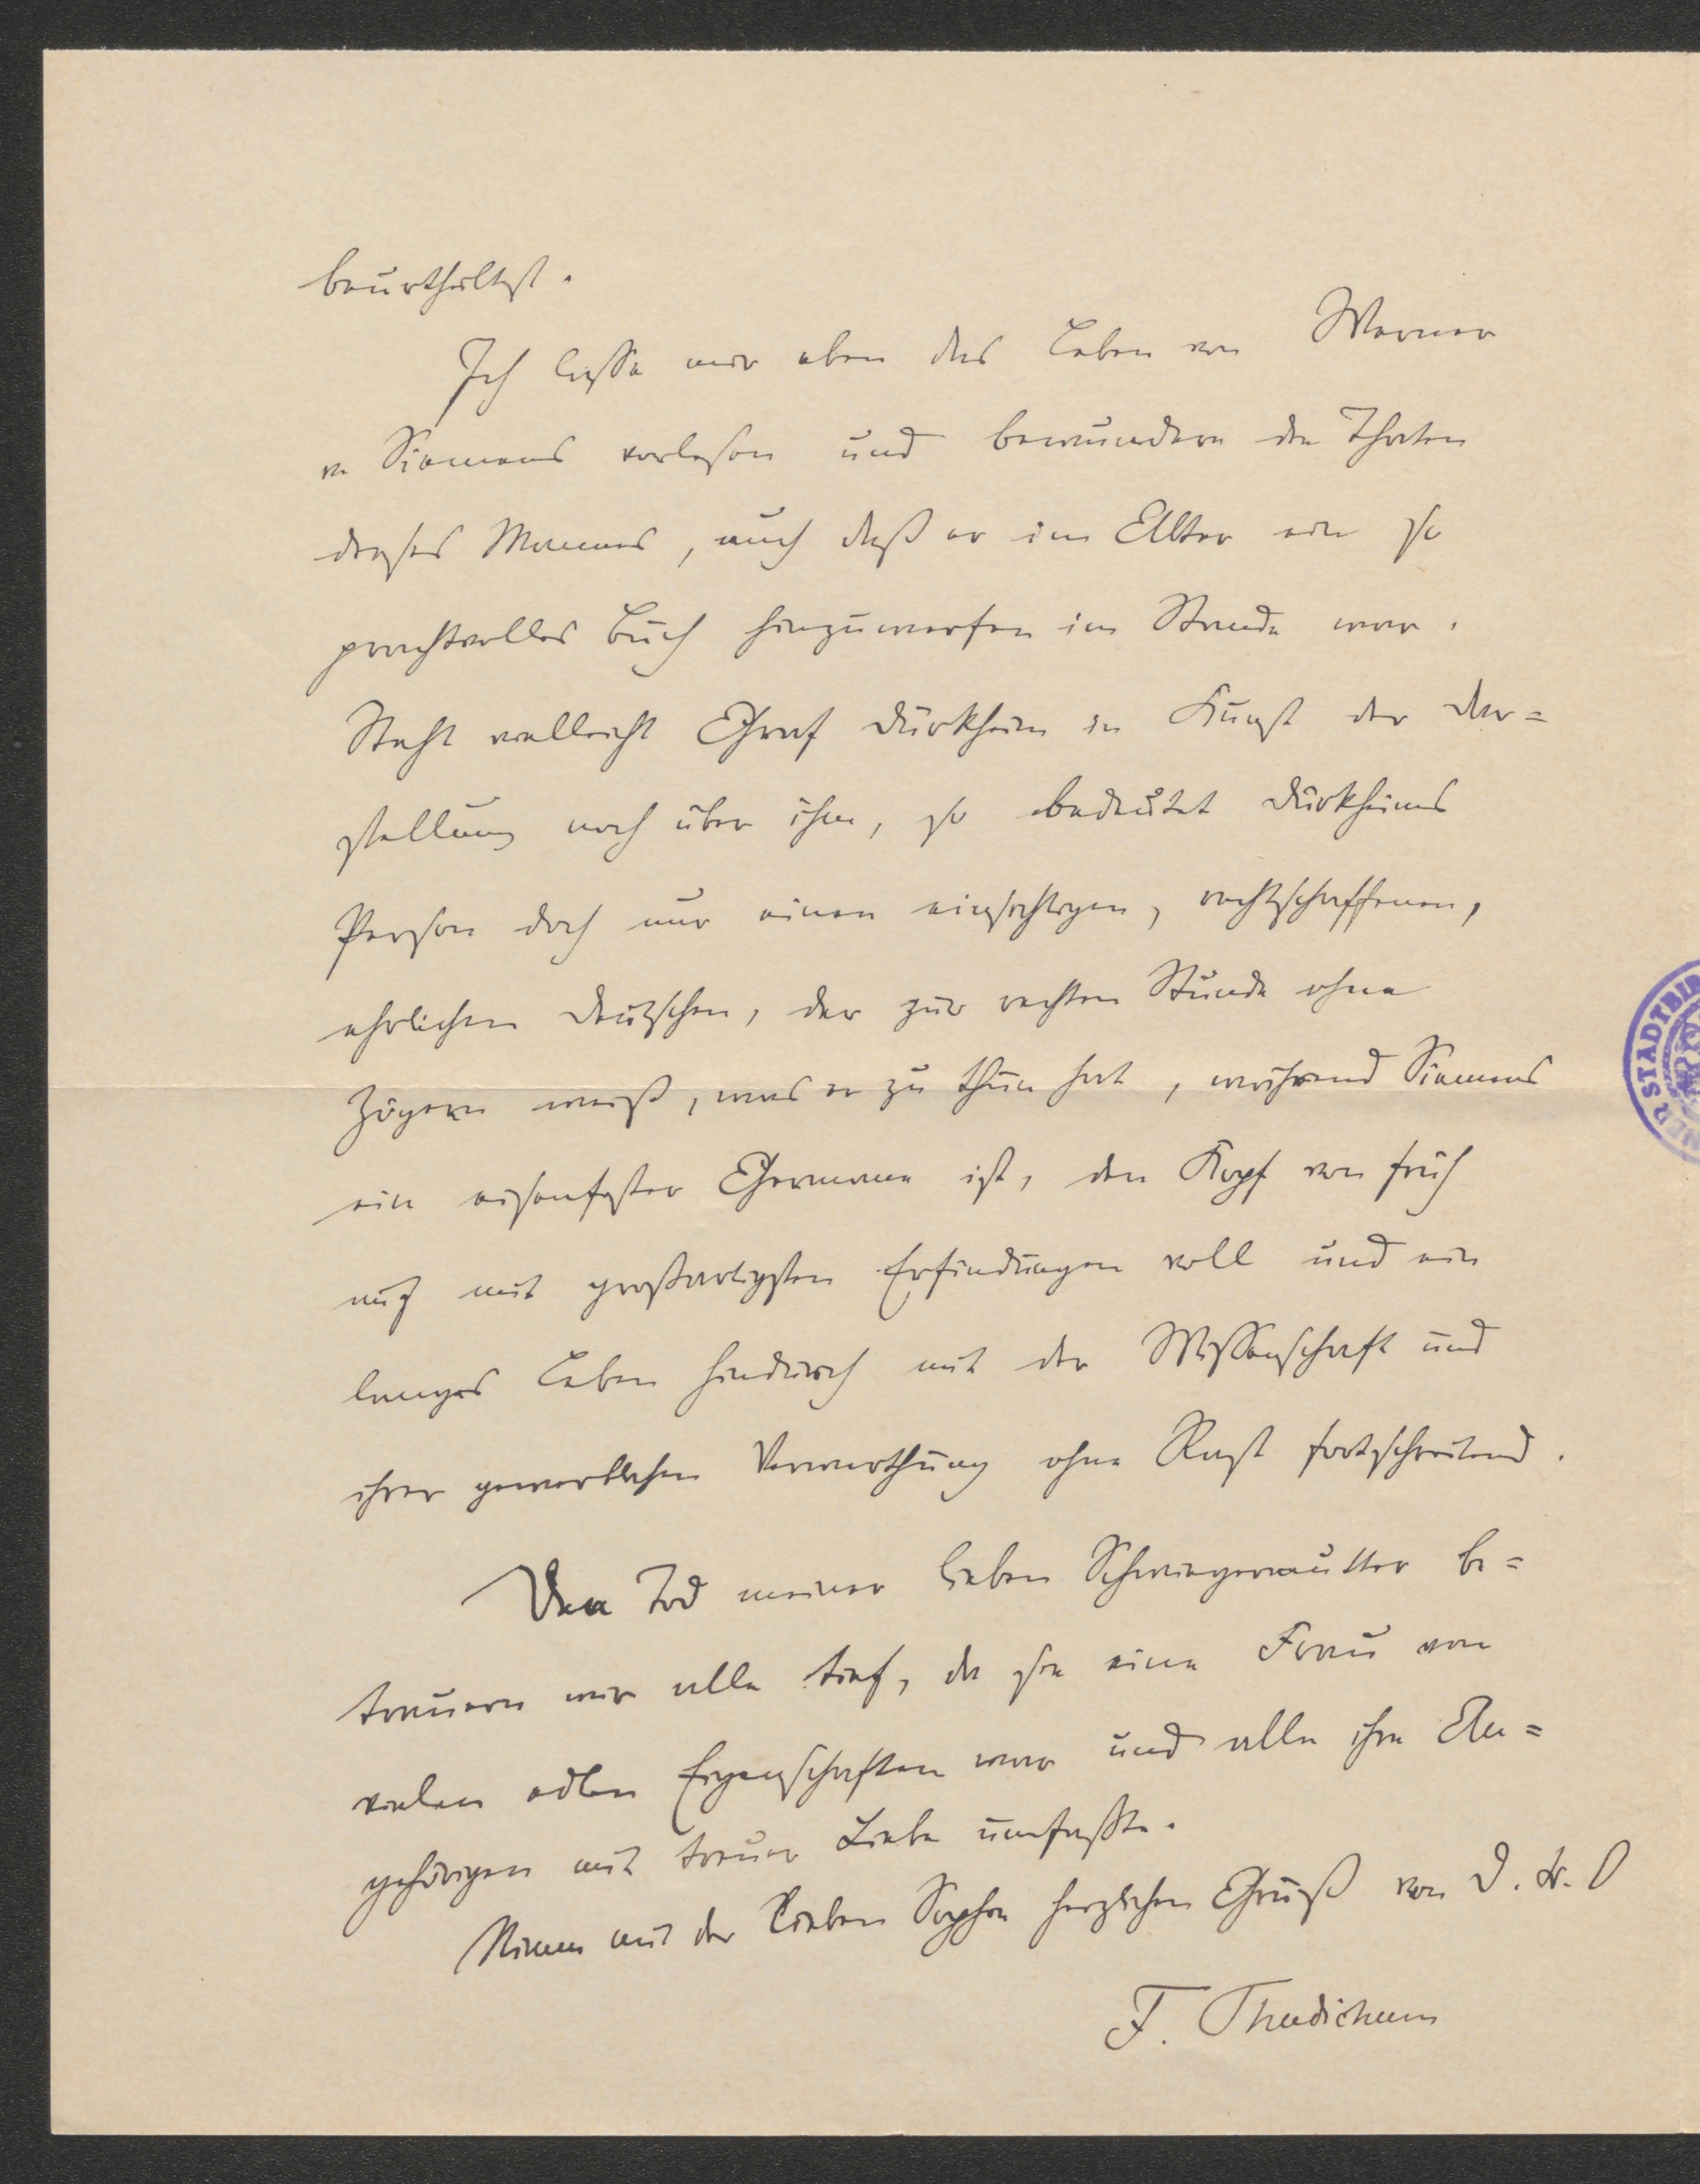 beurtheilst.
Ich lasse mir eben das Leben von Werner
v. Siemens vorlesen und bewundere die Thaten
dieses Mannes, auch daß er im Alter ein so
prachtvolles Buch hinzuwerfen im Stande war.
Steht vielleicht Graf Dürkheim in Kunst der Dar=
stellung noch über ihm, so bedeutet Dürkheims
Person doch nur einen einsichtigen, rechtschaffenen,
ehrlichen Deutschen, der zur rechten Stunde ohne
Zögern weiß, was er zu thun hat, während Siemens
ein eisenfester Germane ist, den Kopf von früh
auf mit großartigsten Erfindungen voll und ein
langes Leben hindurch mit der Wissenschaft und
ihrer gewerblichen Verwerthung ohne Rast fortschreitend.
Den Tod meiner lieben Schwiegermutter be=
trauern wir alle tief, da sie eine Frau von
vielen edlen Eigenschaften war und alle ihre An=
gehörigen mit treuer Liebe umfaßte.
Nimm mit der lieben Sophie herzlichen Gruß von D. tr. O
F. Thudichum
STADTBIB